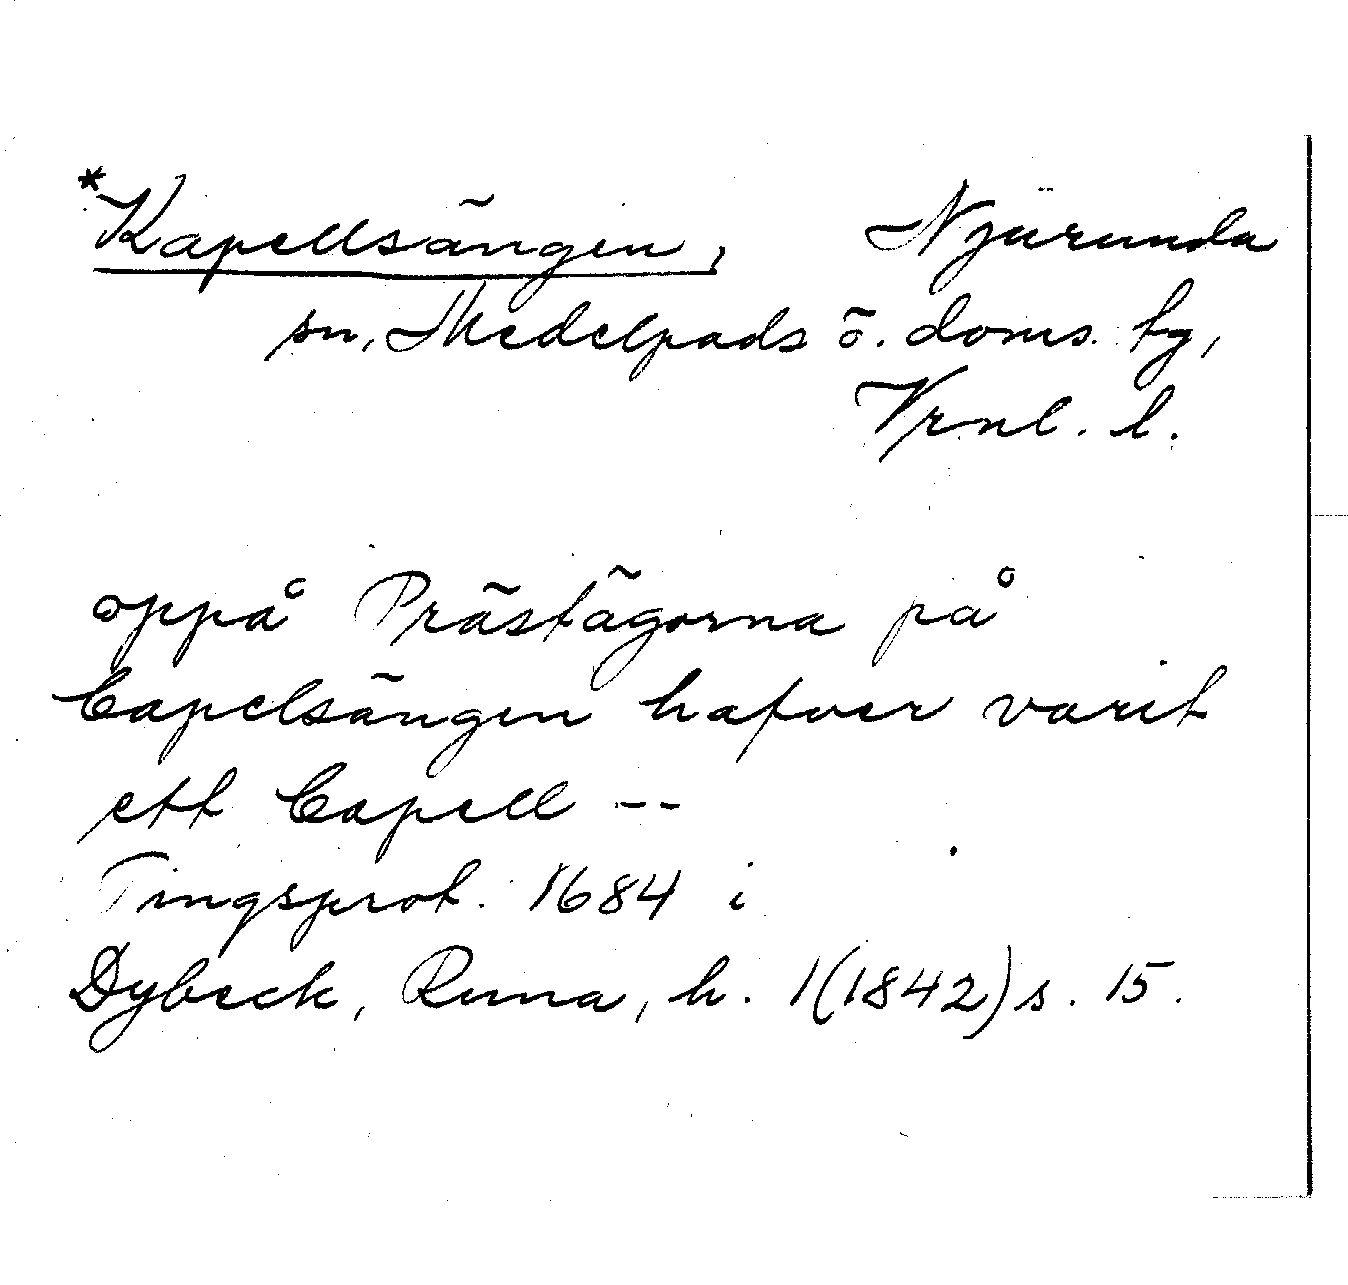 *Kapellsängen, Njurunda
sn, Medelpads ö. doms. hg,
Vrnl. l.
oppå Prästägorna på
Capelsängen hafver varit
ett Capell --
Tingsprot. 1684 i
Dybeck, Runa, h. 1(1842) s. 15.